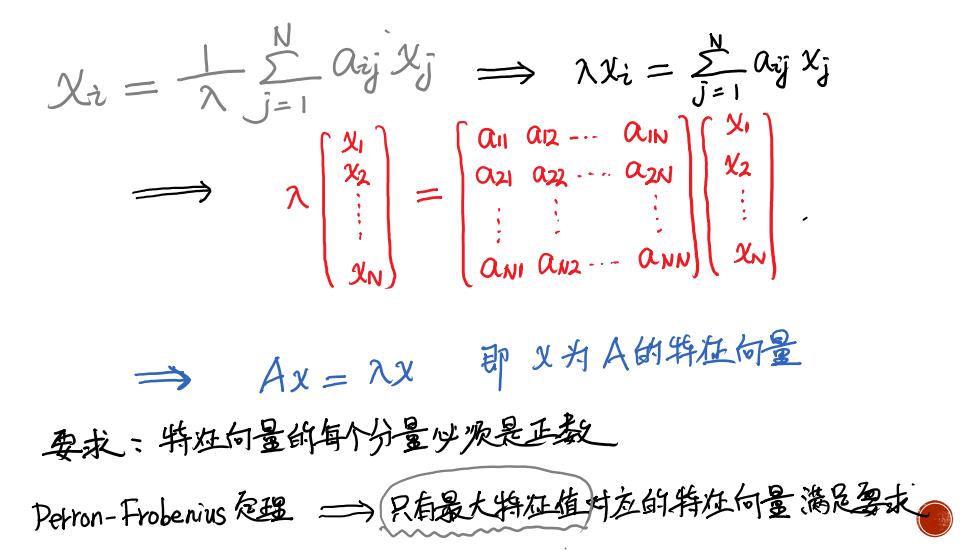 xᵢ = 1/λ ∑_{j=1}^{N} aᵢⱼ xⱼ ⟹ λxᵢ = ∑_{j=1}^{N} aᵢⱼ xⱼ
⟹ λ [x₁ x₂ ⋮ x_N] = [a₁₁ a₁₂ ⋯ a₁N
a₂₁ a₂₂ ⋯ a₂N
⋮ ⋮ ⋮
a_N1 a_N2 ⋯ a_NN] [x₁ x₂ ⋮ x_N]
⟹ Ax = λx 即 x 为 A 的特征向量
要求：特征向量的每个分量必须是正数
Perron-Frobenius 定理 ⟹ 只有最大特征值对应的特征向量满足要求